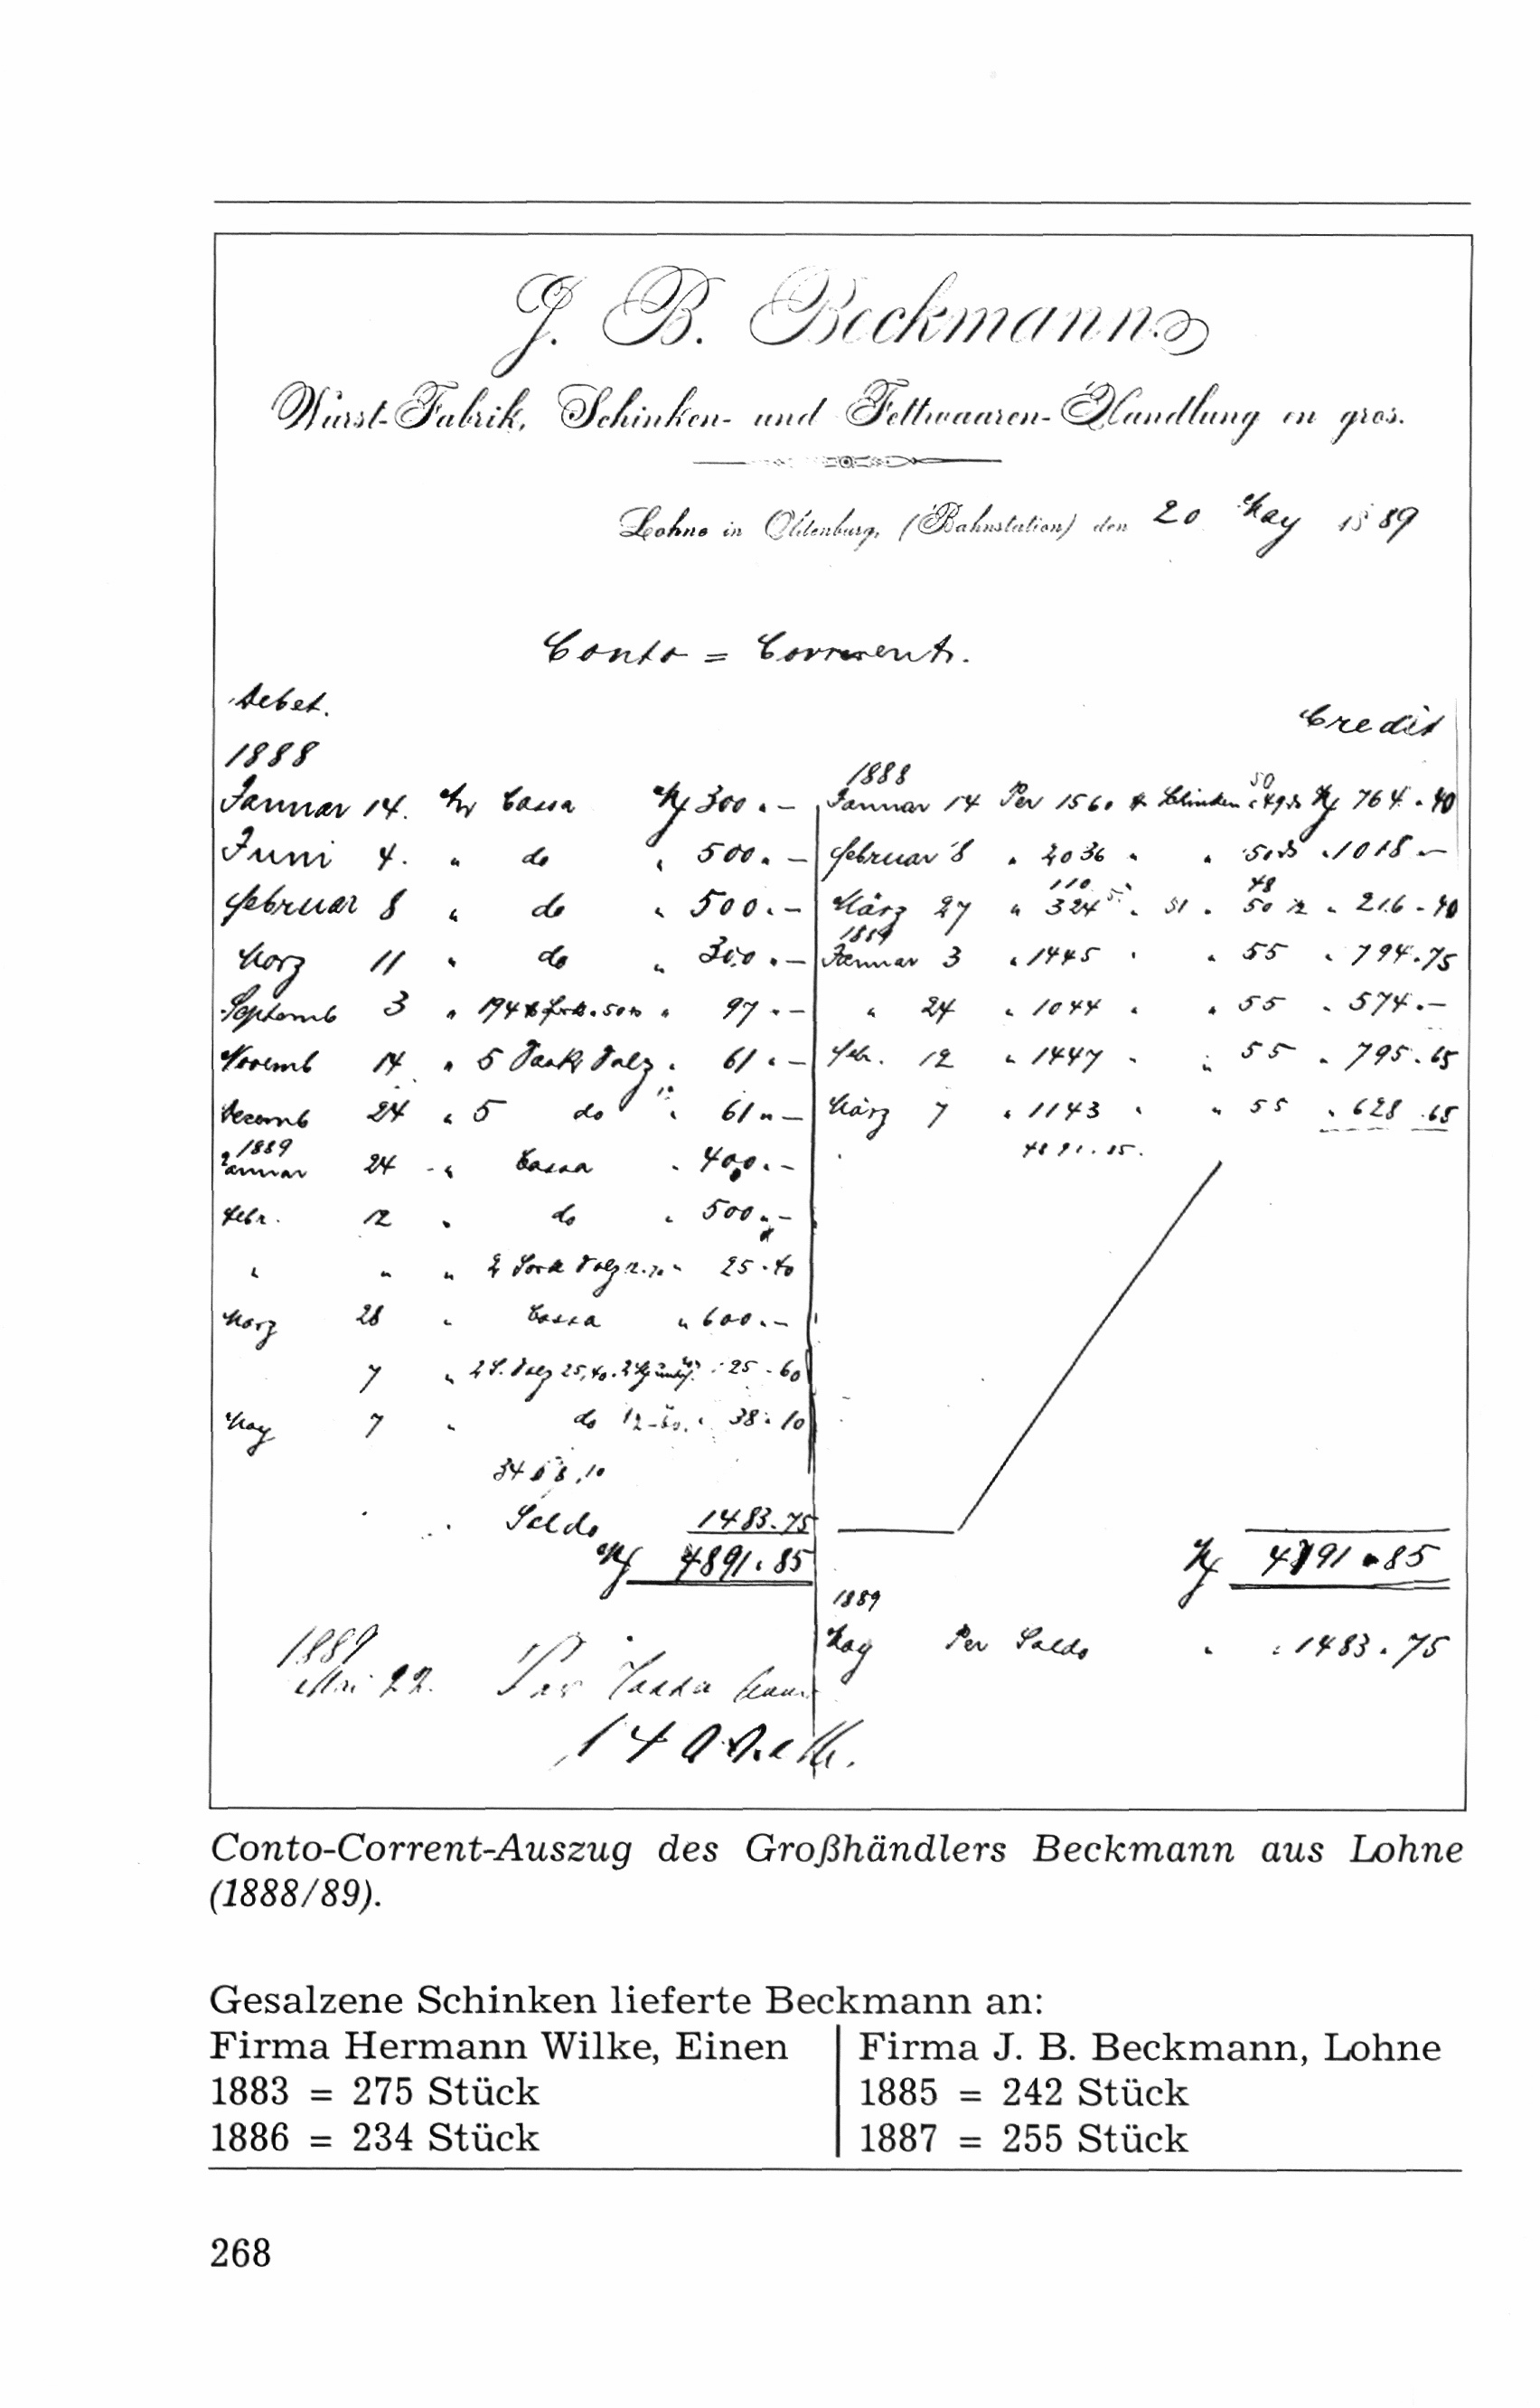 J. B. Beckmann
Wurst-Fabrik, Schinken- und Fettwaaren-Handlung en gros.
Lohne in Oldenburg, (Bahnstation) den 20 May 1889
Conto = Corrent.
Debet.
Credit
1888
Januar 14. An Cassa M 300.-
Juni 4. " do " 500.-
Februar 8 " do " 500.-
März 11 " do " 300.-
Septemb 3 " 194 " 97.-
Novemb 14 " 5 Talg " 61.-
Decemb 24 " 5 do " 61.-
1889
Januar 24 " Cassa " 400.-
Febr. 12 " do " 500.-
" " " 2 Talg 25.40
März 28 " Cassa " 600.-
7 " 2 Talg 25,40. 25.60
May 7 " do 38.10
Saldo 1483.75
M 4891.85
1888
Januar 14 Per 1560 Schinken 50 M 764.40
Februar 8 " 2036 " " 50 " 1018.-
März 27 " 110 324 " 51 " 48 50 " 216.40
1889
Januar 3 " 1445 " " 55 " 794.75
" 24 " 1044 " " 55 " 574.-
Feb. 12 " 1447 " " 55 " 795.65
März 7 " 1143 " " 55 " 628.65
4891.85.
M 4891.85
1889
May Per Saldo " 1483.75
1889
Mai 22. Per Cassa
Conto-Corrent-Auszug des Großhändlers Beckmann aus Lohne
(1888/89).
Gesalzene Schinken lieferte Beckmann an:
Firma Hermann Wilke, Einen
1883 = 275 Stück
1886 = 234 Stück
Firma J. B. Beckmann, Lohne
1885 = 242 Stück
1887 = 255 Stück
268